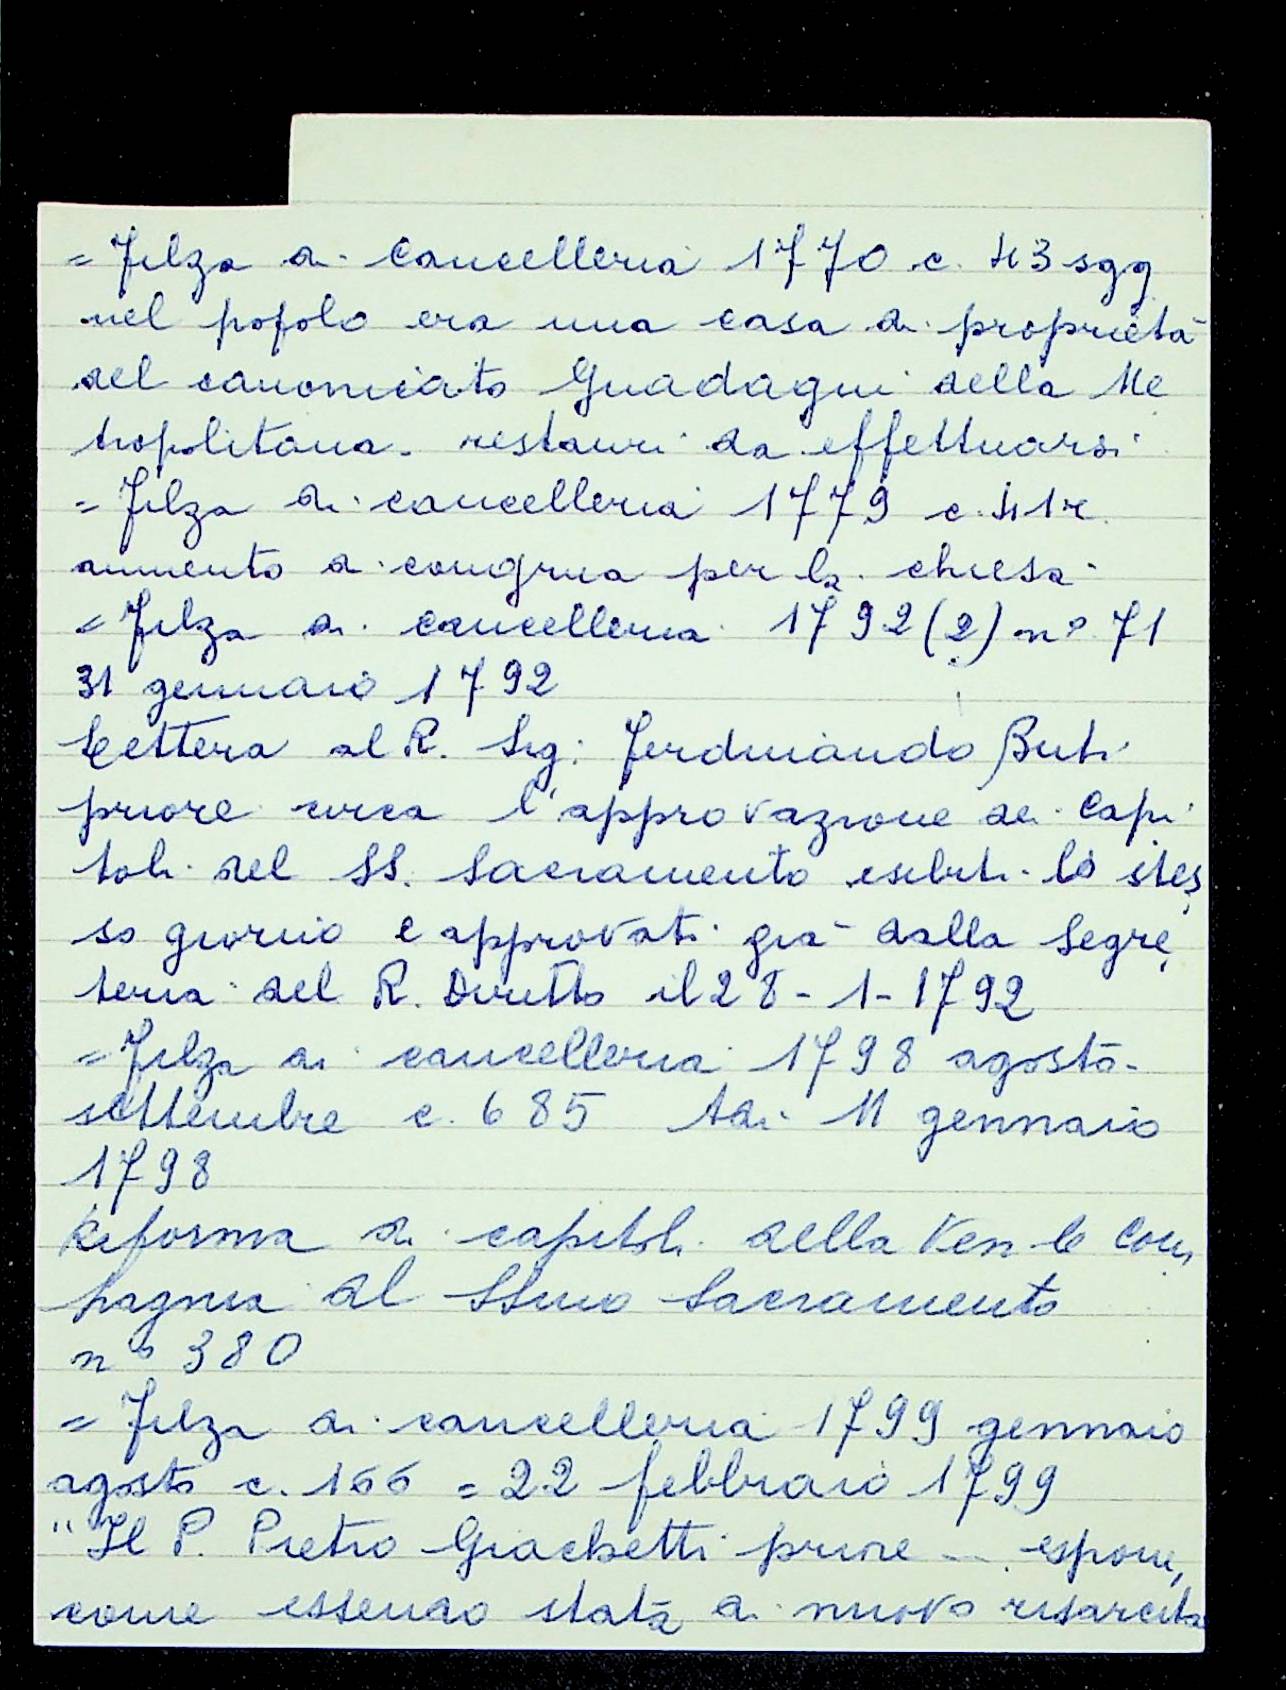 = Filza di cancelleria 1770 c. 43 sgg
nel popolo era una casa di proprietà
del canonicato Guadagni della Me
tropolitana. restauri da effettuarsi
= Filza di cancelleria 1779 c. 41r.
aumento di congrua per la chiesa
= Filza di cancelleria 1792 (2) n° 71
31 gennaio 1792
Lettera al R. Sig: Ferdinando Buti
priore circa l'approvazione dei Capi
toli del SS. Sacramento esibiti lo stes
so giorno e approvati già dalla Segre
teria del R. Diritto il 28-1-1792
= Filza di cancelleria 1798 agosto-
settembre c. 685 Adi 11 gennaio
1798
Riforma di capitoli della Ven le Com
pagnia del SSmo Sacramento
n° 380
= Filza di cancelleria 1799 gennaio
agosto c. 166 = 22 febbraio 1799
"Il P. Pietro Giachetti priore ... espone,
come essendo stata di nuovo risarcita